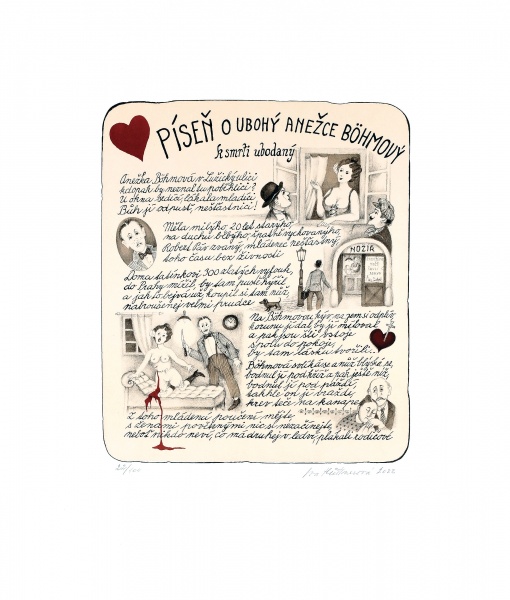 PÍSEŇ O UBOHÝ ANEŽCE BÖHMOVÝ
k smrti ubodaný
Anežka Böhmová v Ložický ulici
kdopak by neznal tu poběhlici?
U okna sedíc lákala mládíci
Bůh jí odpusť, nešťastnici!
Měla milýho 20 let starýho,
na duchu blbýho, špatně vychovanýho,
Robert Pás zvaný, mládenec nešťastný
toho času bez živnosti
Doma tatínkovi 300 zlatých vyfouk,
do Prahy mířil, by tam pustl hýřil
a jak to bejvá už, koupil si tam nůž
nabroušenej velmi prudce
NOŽÍŘ
Na Böhmovou kýv, ze zem si odpliv
korunu jí dal, by ji miloval
a pak jsou šli vstoje
spolu do pokoje,
by tam lásku tvořili.
Böhmová svolíkā se a nůž blýská se,
bodnul ji pod kůži a pak ještě níž,
bodnul ji pod paždí,
takhle on ji vraždí,
krev teče na kanape
Z toho mládenci poučení mějte,
s ženami pověstnými nic si nezačínejte,
neboť nikdo neví, co má druhej v ledví, plakali rodičové
2022